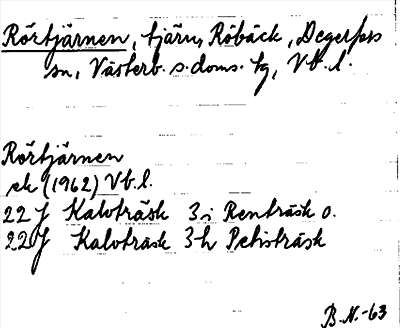 Rörtjärnen, tjärn, Röbäck, Degerfors
sn, Västerb. s. doms. tg, Vb. l.
Rörtjärnen
ek (1962) Vb. l.
22 J Kalvträsk 3i Renträsk o.
22 J Kalvträsk 3h Petisträsk
B. N. -63